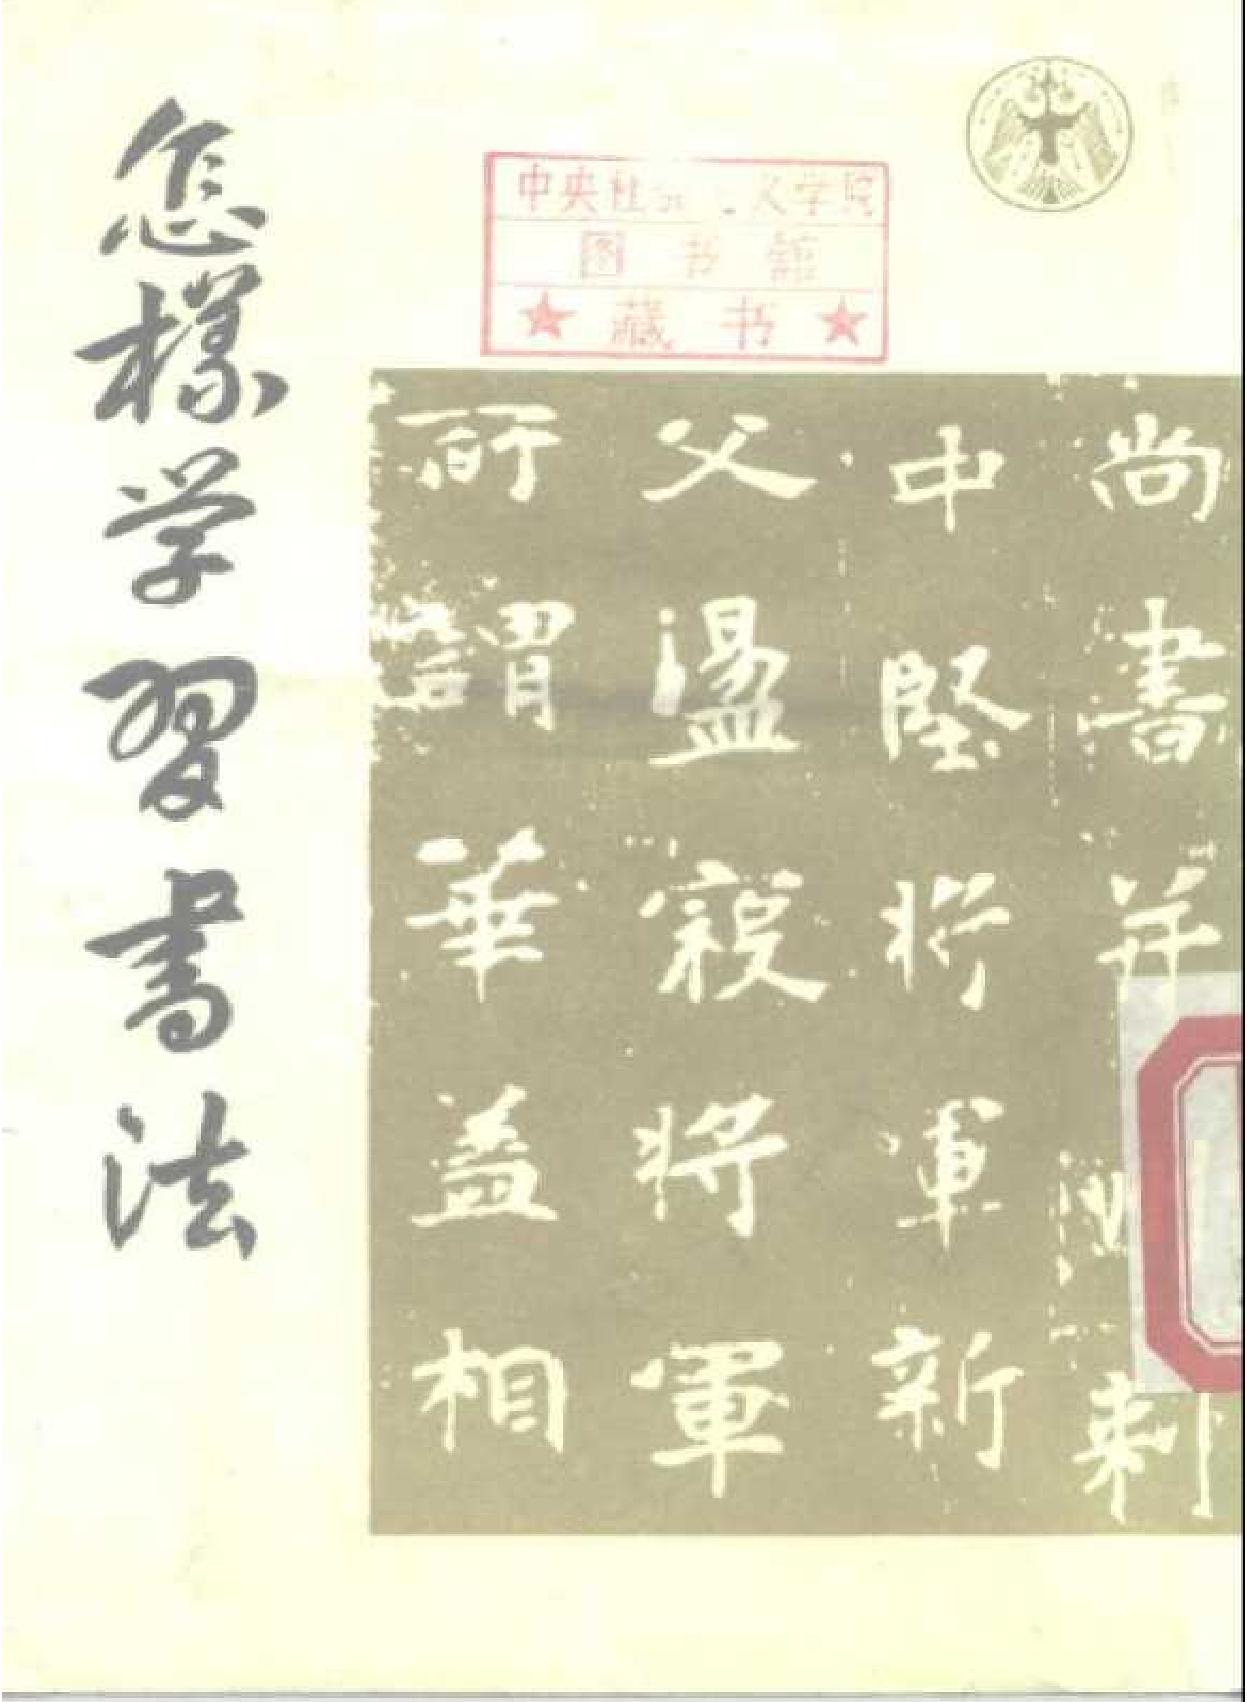 怎樣学習書法
中央社 义学院
图书馆
★ 藏 书 ★
尚書并 刺
中堅將軍新
父溫 將軍
謂華盖相